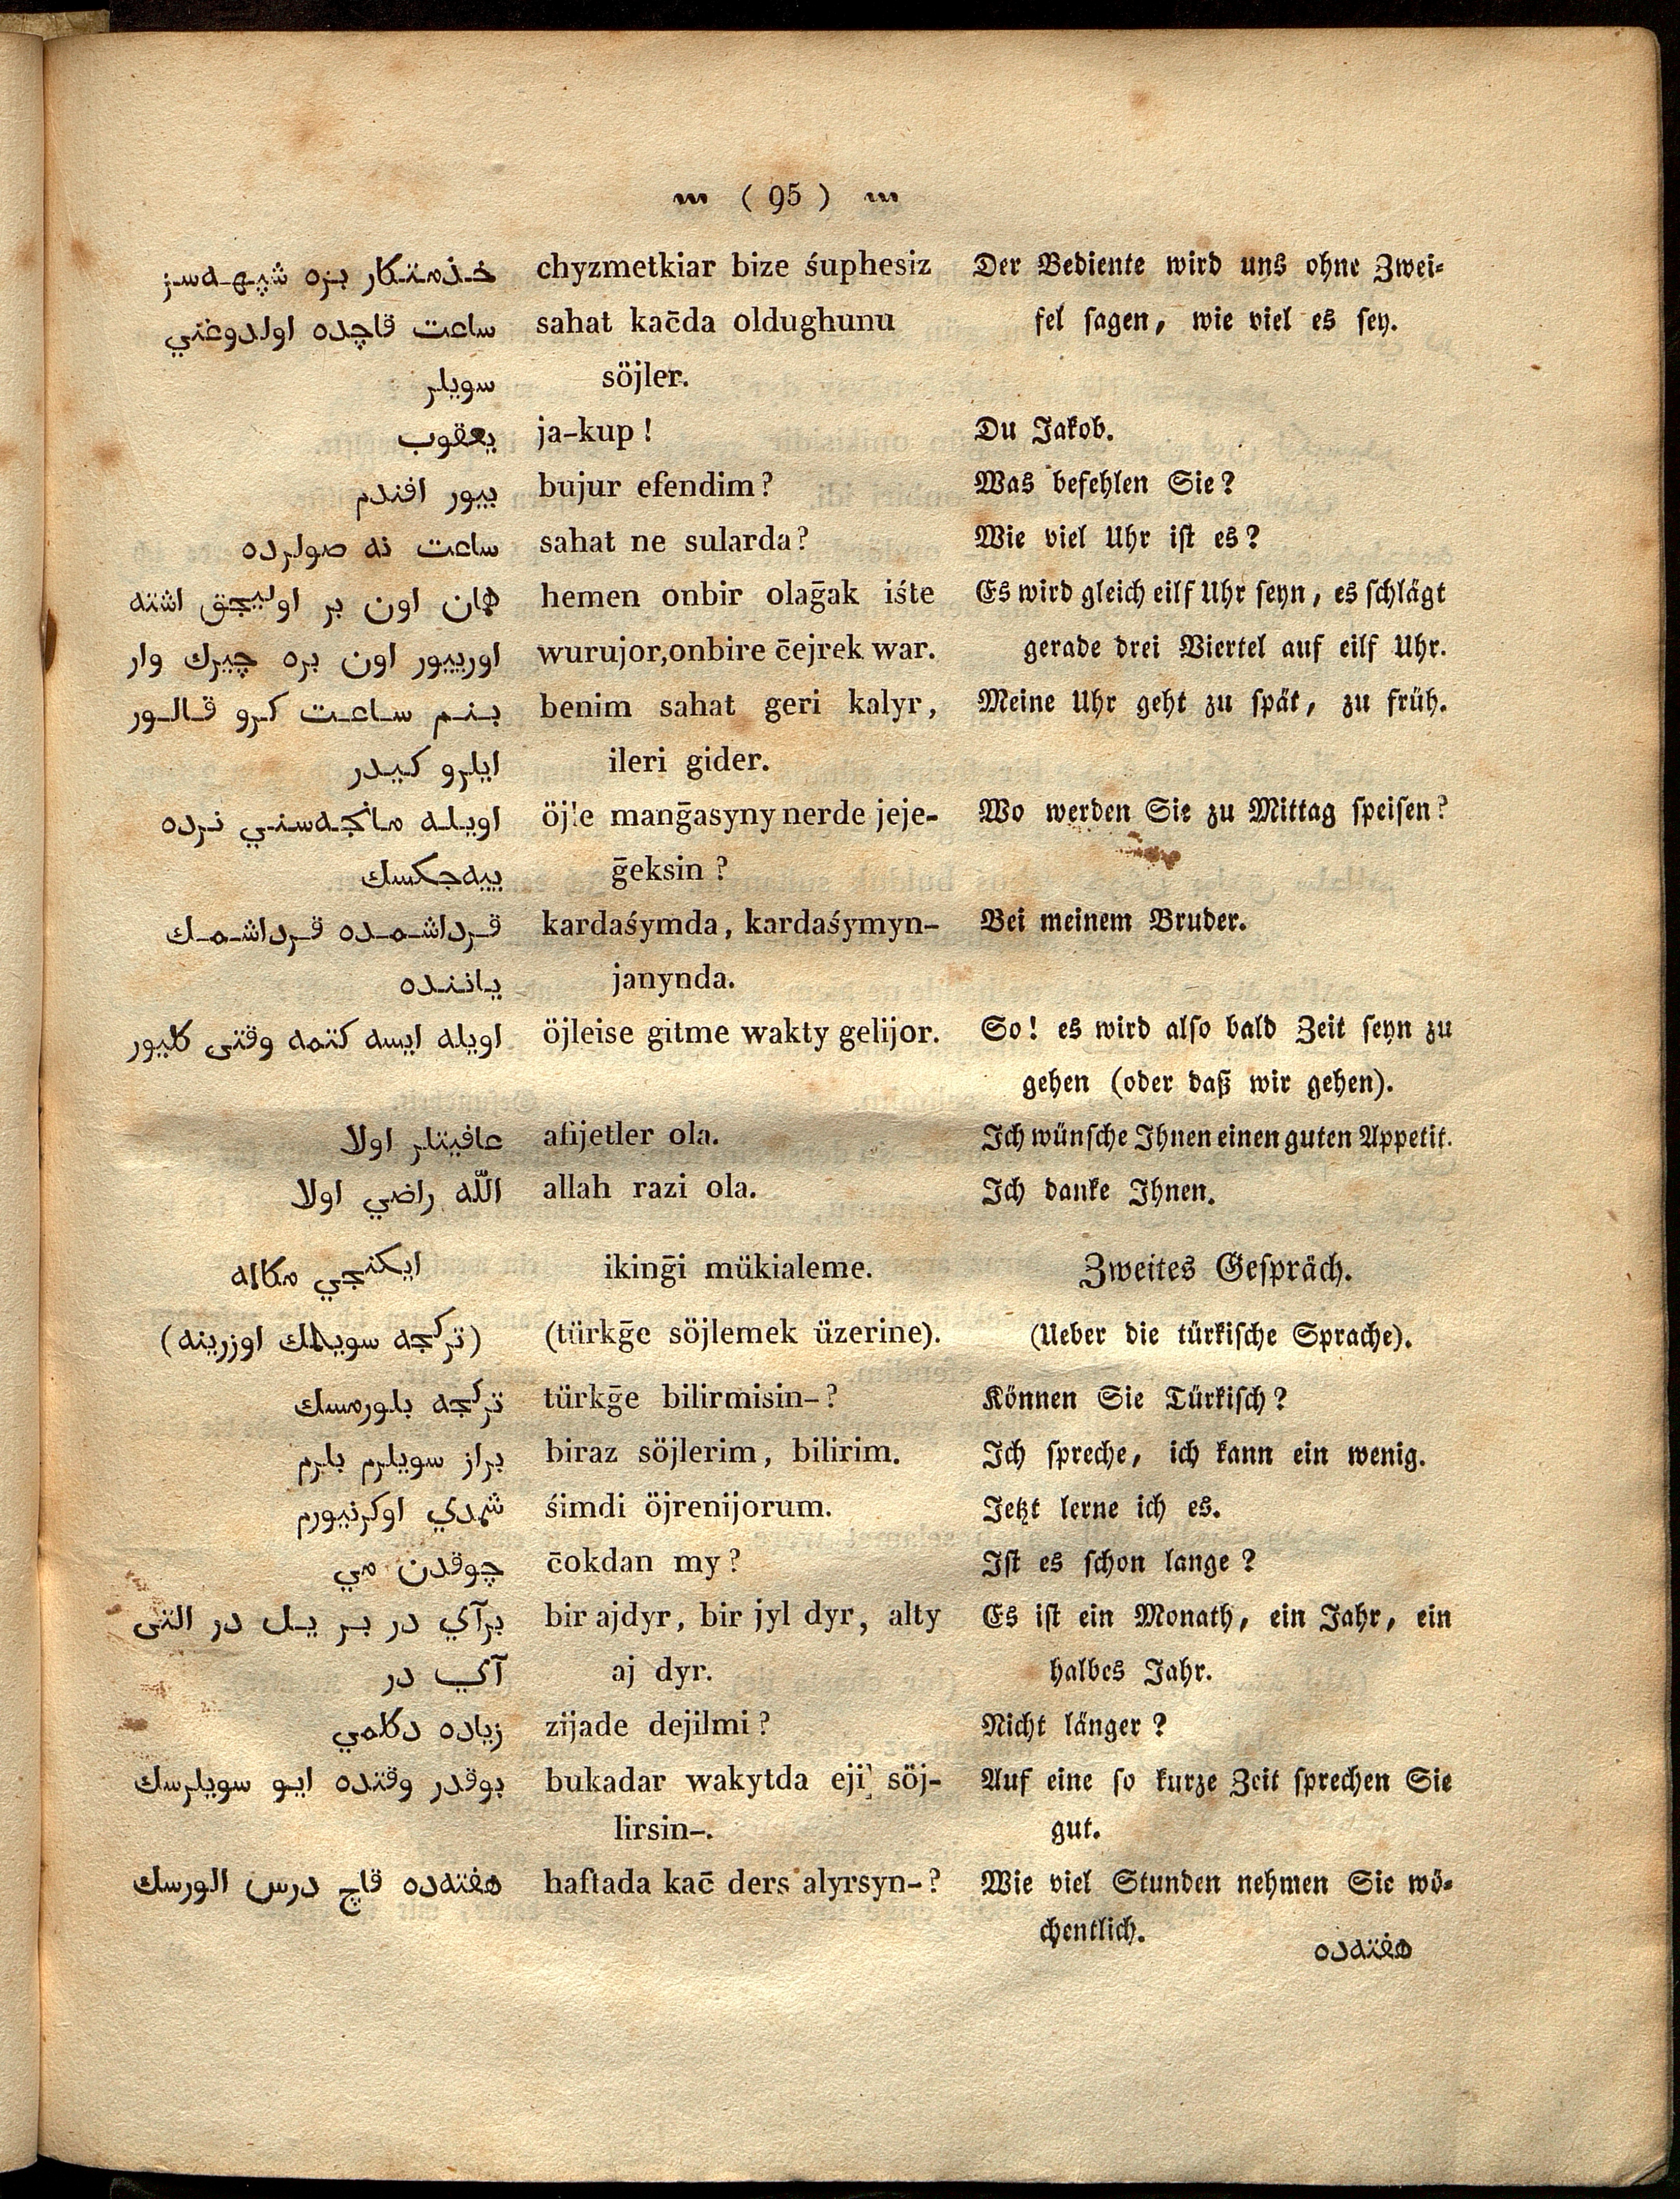 ( 95 )
خذمتكار بزه شپهه‌سز chyzmetkiar bize śuphesiz Der Bediente wird uns ohne Zwei-
ساعت قاچده اولدوغني sahat kac̄da oldughunu fel sagen, wie viel es sey.
سويلر söjler.
يعقوب ja-kup! Du Jakob.
بيور افندم bujur efendim? Was befehlen Sie?
ساعت نه صولرده sahat ne sularda? Wie viel Uhr ist es?
همان اون بر اوليجق اشته hemen onbir olaḡak iśte Es wird gleich eilf Uhr seyn, es schlägt
اورييور اون بره چيرك وار wurujor, onbire c̄ejrek war. gerade drei Viertel auf eilf Uhr.
بنم ساعت كرو قالور benim sahat geri kalyr, Meine Uhr geht zu spät, zu früh.
ايلرو كيدر ileri gider.
اويله مانجه‌سني نرده öjle manḡasyny nerde jeje- Wo werden Sie zu Mittag speisen?
ييه‌جكسك ḡeksin?
قرداشمده قرداشمك kardaśymda, kardaśymyn- Bei meinem Bruder.
ياننده janynda.
اويله ايسه كتمه وقتى كليور öjleise gitme wakty gelijor. So! es wird also bald Zeit seyn zu
gehen (oder daß wir gehen).
عافيتلر اولا afijetler ola. Ich wünsche Ihnen einen guten Appetit.
الله راضي اولا allah razi ola. Ich danke Ihnen.
ايكنجي مكاله ikinḡi mükialeme. Zweites Gespräch.
(تركجه سويلمك اوزرينه) (türkḡe söjlemek üzerine). (Ueber die türkische Sprache).
تركجه بلورمسك türkḡe bilirmisin-? Können Sie Türkisch?
براز سويلرم بلرم biraz söjlerim, bilirim. Ich spreche, ich kann ein wenig.
شمدي اوكرنيورم śimdi öjrenijorum. Jetzt lerne ich es.
چوقدن مي c̄okdan my? Ist es schon lange?
برآي در بر يل در التى bir ajdyr, bir jyl dyr, alty Es ist ein Monath, ein Jahr, ein
آي در aj dyr. halbes Jahr.
زياده دكلمي zijade dejilmi? Nicht länger?
بوقدر وقتده ايو سويلرسك bukadar wakytda eji söj- Auf eine so kurze Zeit sprechen Sie
lirsin-. gut.
هفته‌ده قاچ درس الورسك haftada kac̄ ders alyrsyn-? Wie viel Stunden nehmen Sie wö-
chentlich.
هفته‌ده